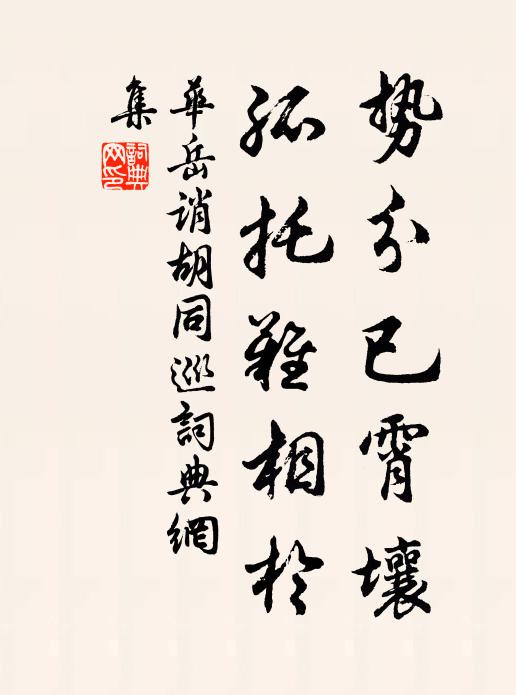 势分已霄壤
孤托難相於
華岳誚胡同巡詞典網
集
詞典网印